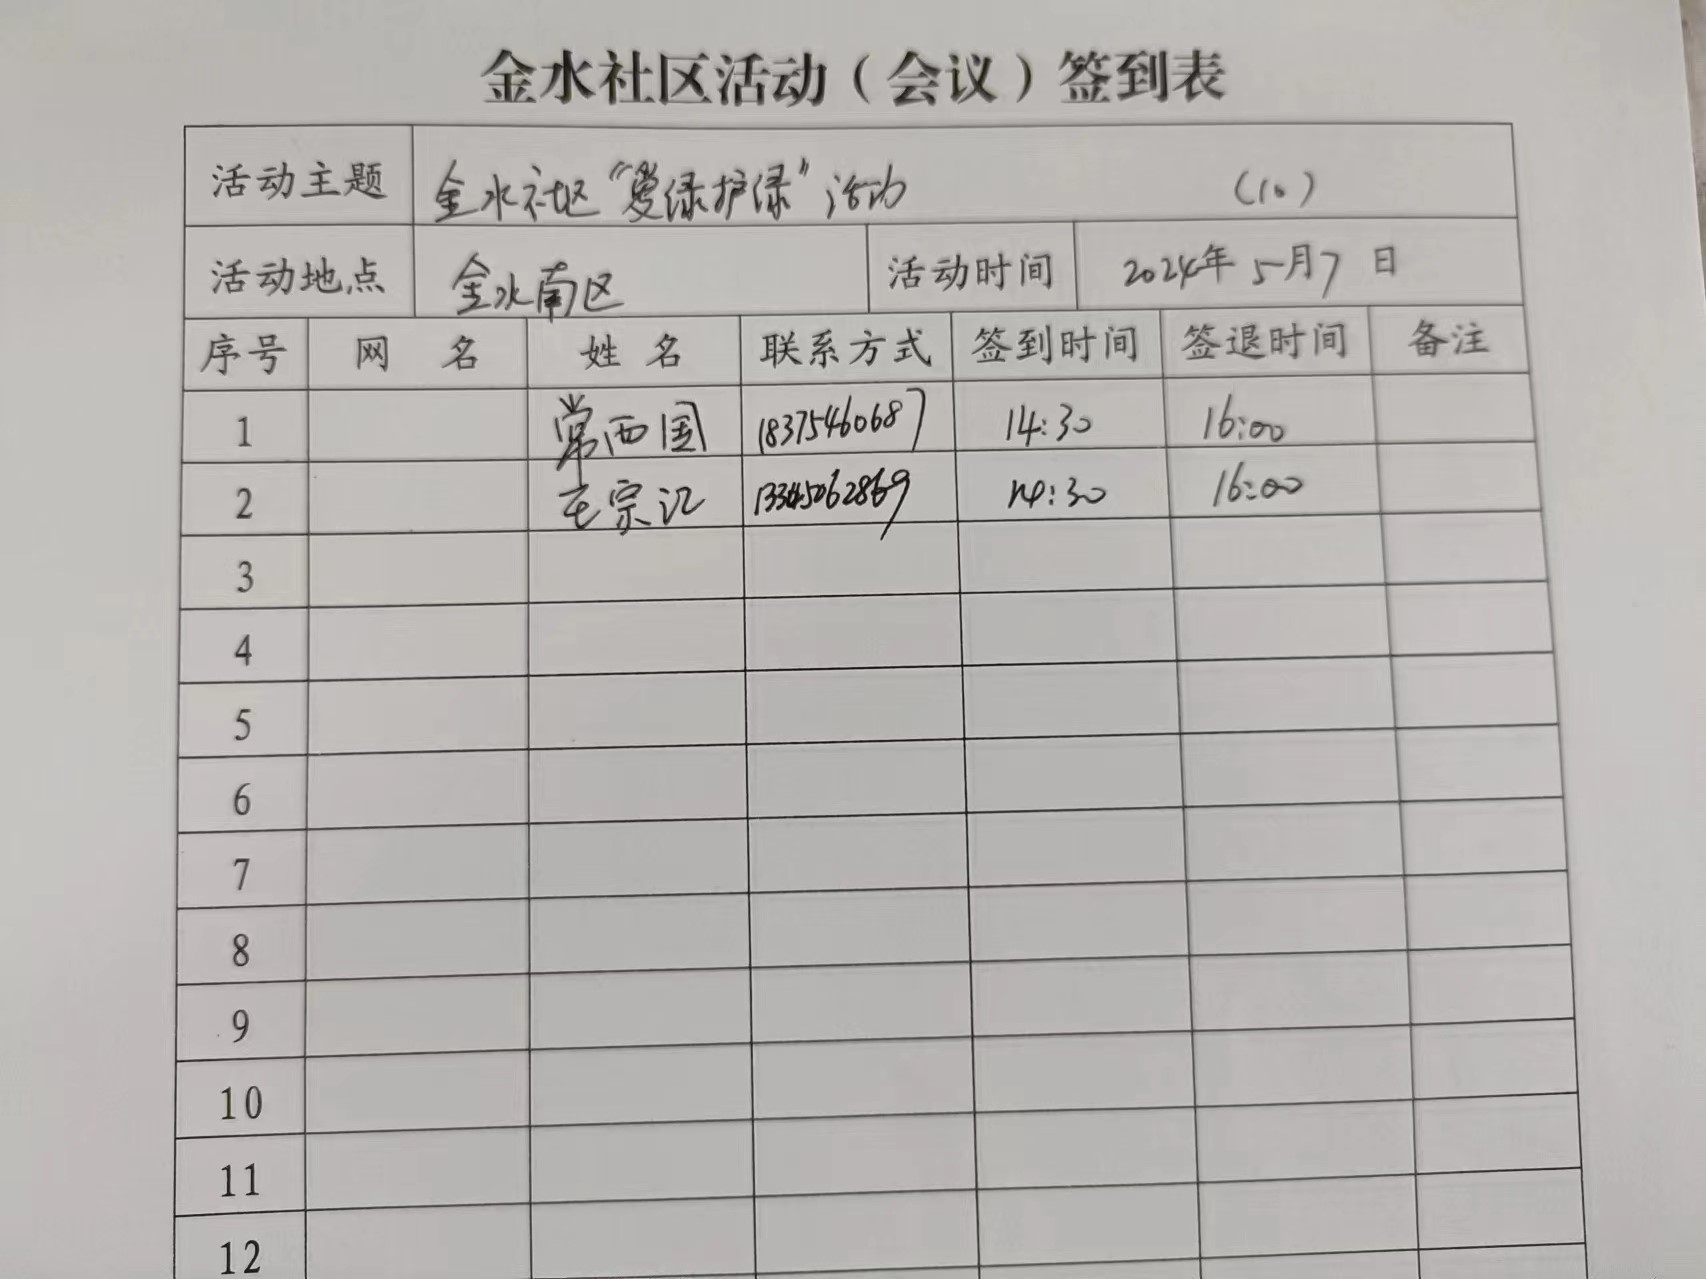 金水社区活动（会议）签到表
活动主题 金水社区“爱绿护绿”活动 （10）
活动地点 金水南区 活动时间 2024年5月7日
序号 网名 姓名 联系方式 签到时间 签退时间 备注
1 常西国 18375460687 14:30 16:00
2 王宗江 14:30 16:00
3
4
5
6
7
8
9
10
11
12